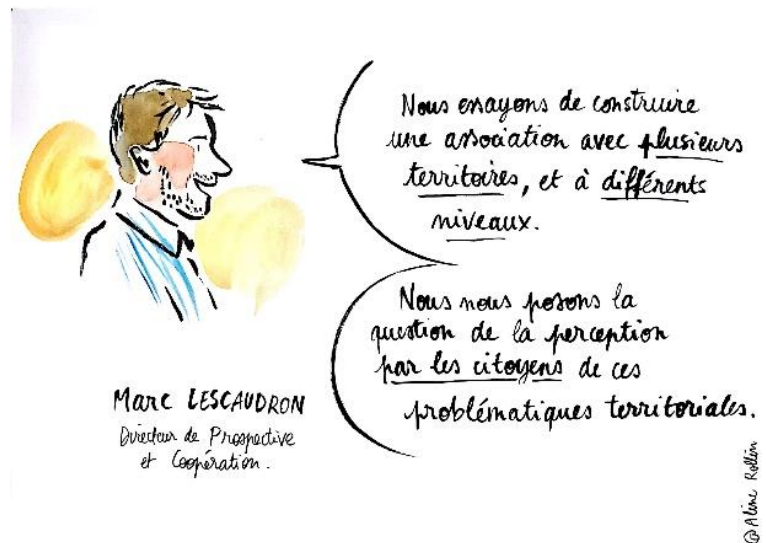 Nous essayons de construire
une association avec plusieurs
territoires, et à différents
niveaux.
Nous nous posons la
question de la perception
par les citoyens de ces
problématiques territoriales.
Marc LESCAUDRON
Directeur de Prospective
et Coopération.
@Aline Rollin